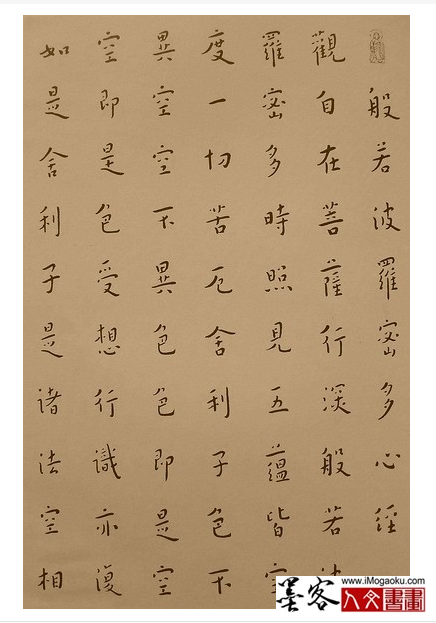 般若波羅密多心經
觀自在菩薩行深般若
羅密多時照見五蘊皆空
度一切苦厄舍利子色不
異空空不異色色即是空
空即是色受想行識亦復
如是舍利子是諸法空相
墨客
www.iMogaoku.com
人文書畫